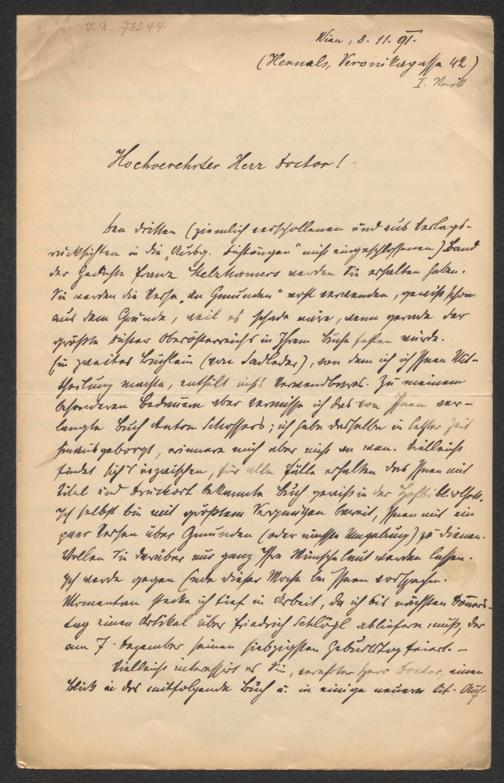 J. N. 73244
Wien, 8. 11. 91.
(Hernals, Veronikagasse 42)
I. Stock
Hochverehrter Herr Doctor!
Den dritten (ziemlich verschollenen und aus Verlags-
rücksichten in die „Ausgew. Dichtungen“ nicht eingeschlossenen) Band
der Gedichte Franz Stelzhamers werden Sie erhalten haben.
Sie werden die Verse „An Gmunden“ wohl verwenden, gewiß schon
aus dem Grunde, weil es schade wäre, wenn gerade der
größte Dichter Oberösterreichs in Ihrem Buche fehlen würde.
Ein zweites Büchlein (von Sadleder), von dem ich Ihnen Mit-
theilung machte, enthält nichts Verwendbares. Zu meinem
besonderen Bedauern aber vermisse ich das von Ihnen ver-
langte Buch Anton Schossers; ich habe dasselbe in letzter Zeit
hinausgeborgt, erinnere mich aber nicht an wen. Vielleicht
findet sich's inzwischen, für alle Fälle erhalten das Ihnen mit
Titel und Druckort bekannte Buch gewiß in der Hofbibliothek.
Ich selbst bin mit größtem Vergnügen bereit, Ihnen mit ein
paar Versen über Gmunden (oder nächste Umgebung) zu dienen.
Wollen Sie darüber nur ganz Ihre Wünsche laut werden lassen.
Ich werde gegen Ende dieser Woche bei Ihnen vorsprechen.
Momentan stecke ich tief in Arbeit, da ich bis nächsten Donners-
tag einen Artikel über Friedrich Schlögl abliefern muß, der
am 7. Dezember seinen siebzigsten Geburtstag feiert. –
Vielleicht interessirt es Sie, verehrter Herr Doctor, einen
Blick in das mitfolgende Buch u. in einige neuere lit. Auf-